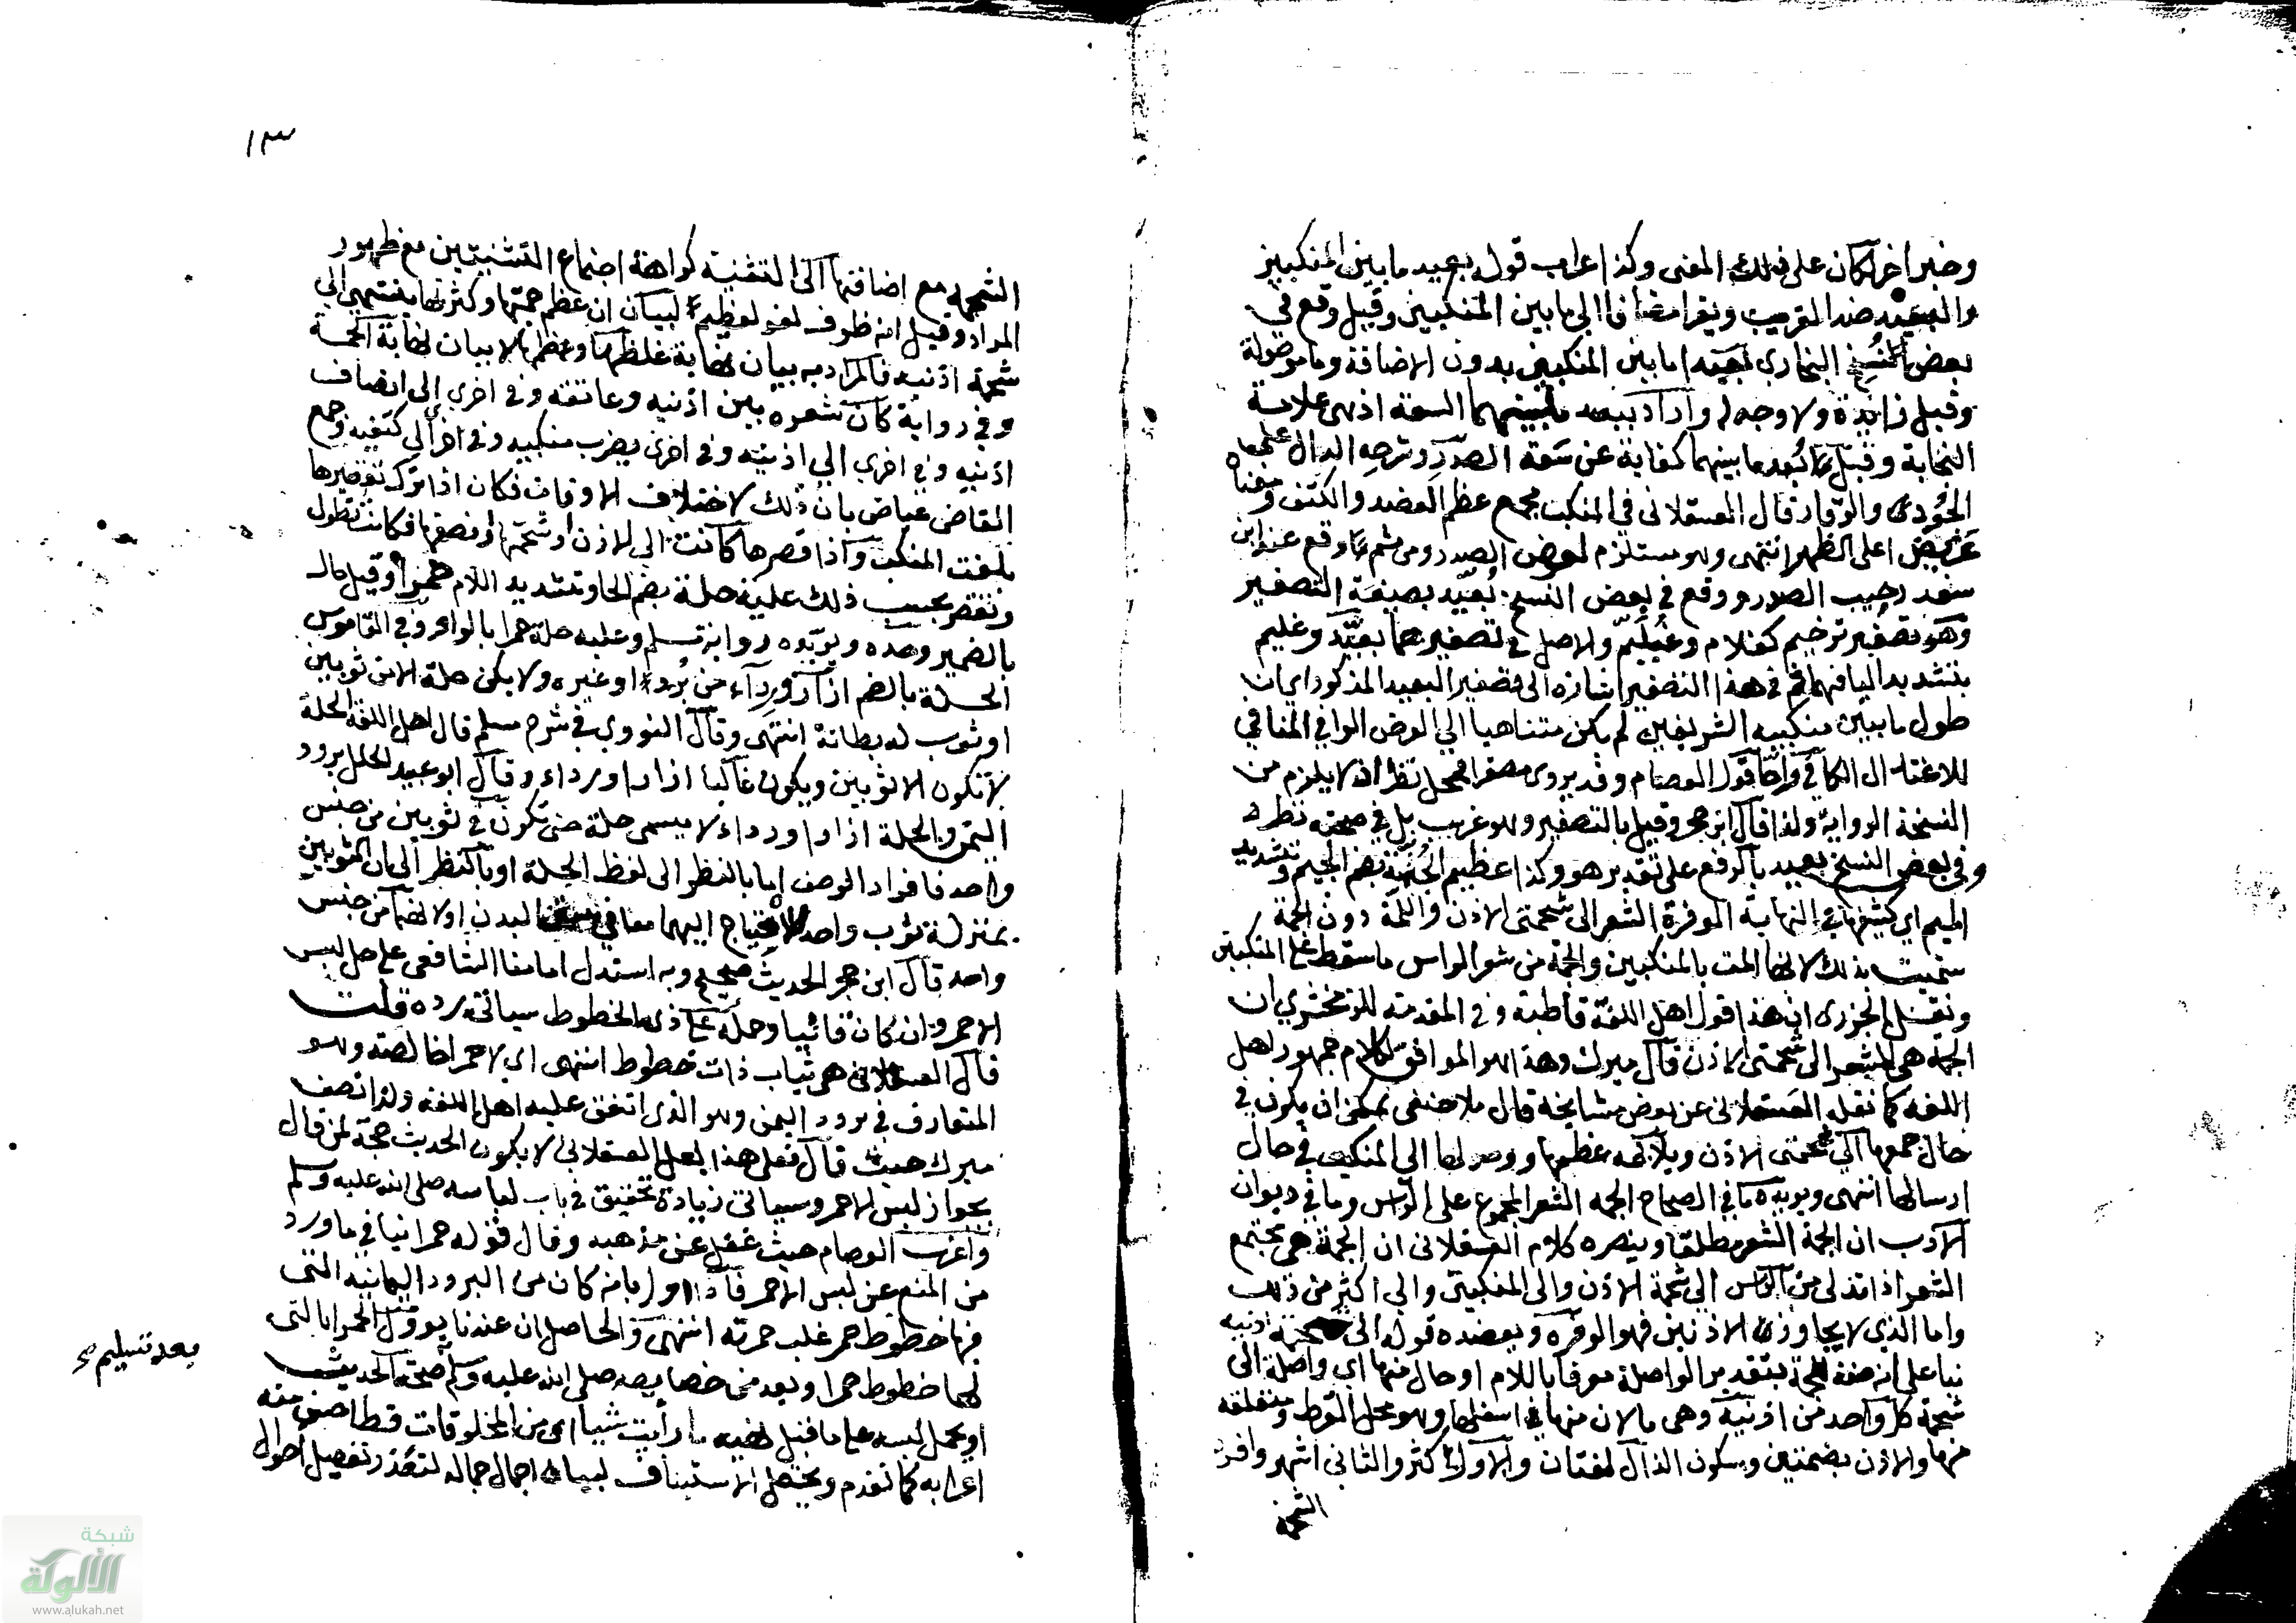 وخبرا خرا لكان على ذلك المعنى وكذا عراب قوله بعيد ما بين المنكبين
والبعيد ضد القريب ويقرا مضافا الى ما بين المنكبين وقيل وقع في
بعض نسخ البخاري بعيدا ما بين المنكبين بدون الاضافة وما موصولة
وقيل زايدة ولا وجه له واراد ببعد ما بينهما السعة اذ هى علامة
النجابة وقيل بعد ما بينهما كناية عن سعة الصدر وشرحه الدال على
الجود والوقار قال العسقلانى فى المنكب مجمع عظم العضد والكتف ومعناه
عريض اعلى الظهر انتهى وهو مستلزم لعرض الصدر ومن ثم وقع عند ابن
سعد رحيب الصدر ووقع فى بعض النسخ بعيد بصيغة التصغير
وهو تصغير ترخيم كغلام وغليم والاصل فى تصغيرهما بعيد وغليم
بتشديد اليا فيهما ففى هذا التصغير اشارة الى تصغير البعيد المذكور اى ان
طول ما بين منكبيه الشريفين لم يكن متناهيا الى العرض الوافي المنافي
للاعتدال الكافي واما قول العصام وقد يروى مصغرا فمحل نظر اذ لا يلزم من
النسخة الرواية ولذا قال ابن حجر وقيل بالتصغير وهو غريب بل في صحته نظر
وفي بعض النسخ بعيد بالرفع على تقدير هو وكذا عظيم الجمة بضم الجيم وتشديد
الميم اي كثيفها في النهاية الوفرة الشعر الى شحمة الاذن واللمة دون الجمة
سميت بذلك لانها المت بالمنكبين والجمة من شعر الراس ما سقط على المنكبين
ونقل الجزرى ان هذا قول اهل اللغة قاطبة وفي المقدمة للزمخشري ان
الجمة هى الشعر الى شحمة الاذن قال ميرك وهذا هو الموافق لكلام جمهور اهل
اللغة كما نقله العسقلانى عن بعض مشايخه قال ملا حنفى يمكن ان يكون في
حال جمعها الى شحمتى الاذن ويلائمه عظمها ووصولها الى المنكب في حال
ارسالها انتهى ويويده ما في الصحاح الجمه الشعر المجموع على الراس وما في ديوان
الادب ان الجمة الشعر مطلقا وينصره كلام العسقلانى ان الجمة هى مجتمع
الشعر اذا تدلى من الراس الى شحمة الاذن والى المنكبين والى اكثر من ذلك
واما الذي لا يجاوز الاذنين فهو الوفره ويعضده قوله الى شحمة اذنيه
بنا على انه صفة للجمة بتقدير الواصلة معرفا باللام او حال منها اي واصلة الى
شحمة كل واحد من اذنيه وهى ما لان منها في اسفلها وهو محل القرط ومتعلقه
منها والاذن بضمتين وسكون الذال لغتان والاول اكثر والثانى اشهر وافرد
الشحمة
١٣
الشحمه مع اضافتها الى التثنية كراهة اجتماع التثنيتين مع ظهور
المراد وقيل انه ظرف لغو لعظيم لبيان ان عظم جمتها وكثرتها ينتهى الى
شحمة اذنيه فالمراد به بيان نهاية غلظها وعظمها لا بيان نهاية الجمة
وفي رواية كان شعره بين اذنيه وعاتقه وفى اخرى الى انصاف
اذنيه وفي اخري الي اذنيه وفى اخرى يضرب منكبيه وفى اخرى الى كتفيه وجمع
القاضى عياض بان ذلك لاختلاف الاوقات فكان اذا ترك تقصيرها
بلغت المنكب واذا قصرها كانت الى الاذن او شحمتها او نصفها فكانت تطول
وتقصر بحسب ذلك عليه حلة بضم الحا وتشديد اللام حمرا وقيل حال
بالضمير وحده ويؤيده رواية مسلم وعليه حلة حمرا بالواو وفى القاموس
الحلة بالضم ازار ورداء من برد او غيره ولا يكون حلة الا من ثوبين
او ثوب له بطانة انتهى وقال النووي في شرح مسلم قال اهل اللغة الحلة
لا تكون الا ثوبين ويكون غالبا ازارا ورداء وقال ابو عبيد الحلل برود
اليمن والحلة ازار ورداء لا يسمى حلة حتى تكون في ثوبين من جنس
واحد فافراد الوصف اما بالنظر الى لفظ الحلة او بالنظر الى ان الثوبين
بمنزلة ثوب واحد للاحتياج اليهما معا في البدن او لانهما من جنس
واحد قال ابن حجر الحديث صحيح وبه استدل امامنا الشافعى على حل لبس
الاحمر وان كان قانيا وحمله على ذى الخطوط سياتى رده قلت
قال العسقلانى هى ثياب ذات خطوط انتهى اى لا حمرا خالصة وهو
المتعارف في برود اليمن وهو الذى اتفق عليه اهل اللغة ولذا نصف
ميرك حيث قال فعلى هذا لعل العسقلانى لا يكون الحديث حجة لمن قال
بجواز لبس الاحمر وسياتى زيادة تحقيق في باب لباسه صلى الله عليه وسلم
واغرب العصام حيث غفل عن مذهبه وقال قوله حمرا ينافي ما ورد
من المنع عن لبس الاحمر فاول بانه كان من البرود اليمانيه التى
فيها خطوط حمر غلب حمرته انتهى والحاصل ان عندنا يوول الحمرا بالتى
لها خطوط حمرا وبعد من خصايصه صلى الله عليه وسلم صحة الحديث
او يحمل لبسه على ما قبل نهيه ما رأيت شيأ اى من المخلوقات قط احسن منه
اعرابه كما تقدم ويحتمل الاستيناف لبيان اجمال جماله لتعذر تفصيل احواله
بعد تسليم
شبكة
الألوكة
www.alukah.net